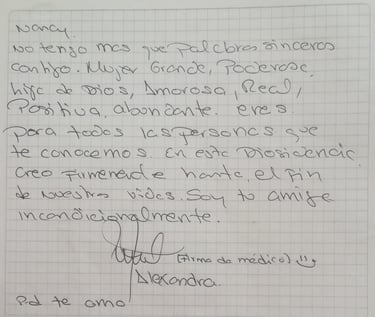 Nancy.
No tengo mas que palabras sinceras
contigo. Mujer Grande, Poderosa,
hija de Dios, Amorosa, Real,
Positiva, abundante. eres
para todas las personas que
te conocemos. En esta Diosidencia
Creo firmemente hasta el fin
de nuestras vidas. Soy tu amiga
incondicionalmente.
(firma de médico)
Alexandra.
Pd te amo